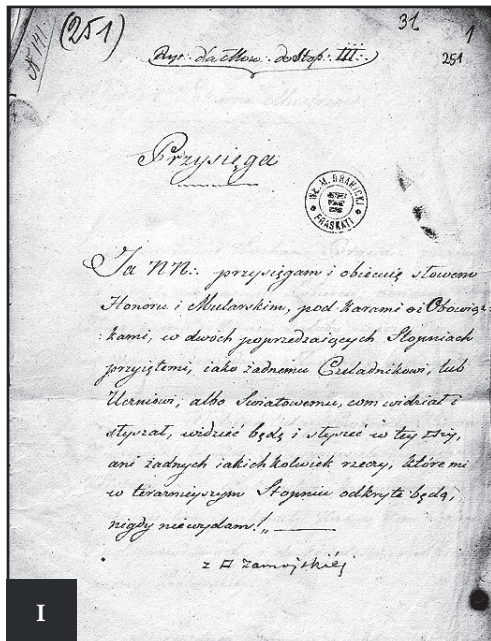 N 141.
(251)
31
1
251
Ryt: dla Mow: do Stop: III:.
Przysięga
WŁ. M. BRANICKI
FRASKATI
Ja NN:. przysięgam i obiecuię słowem
Honoru i Mularskim, pod karami i Obowiąz-
-kami, w dwóch poprzedzaiących Stopniach
przyiętemi, iako żadnemu Czeladnikowi, lub
Uczniowi, albo Swiatowemu, com widział i
słyszał, widzieć będę i słyszeć w tey
ani żadnych iakichkolwiek rzeczy, które mi
w teraznieyszym Stopniu odkryte będą,
nigdy niewydam!„
z □ Zamojskiéj
I